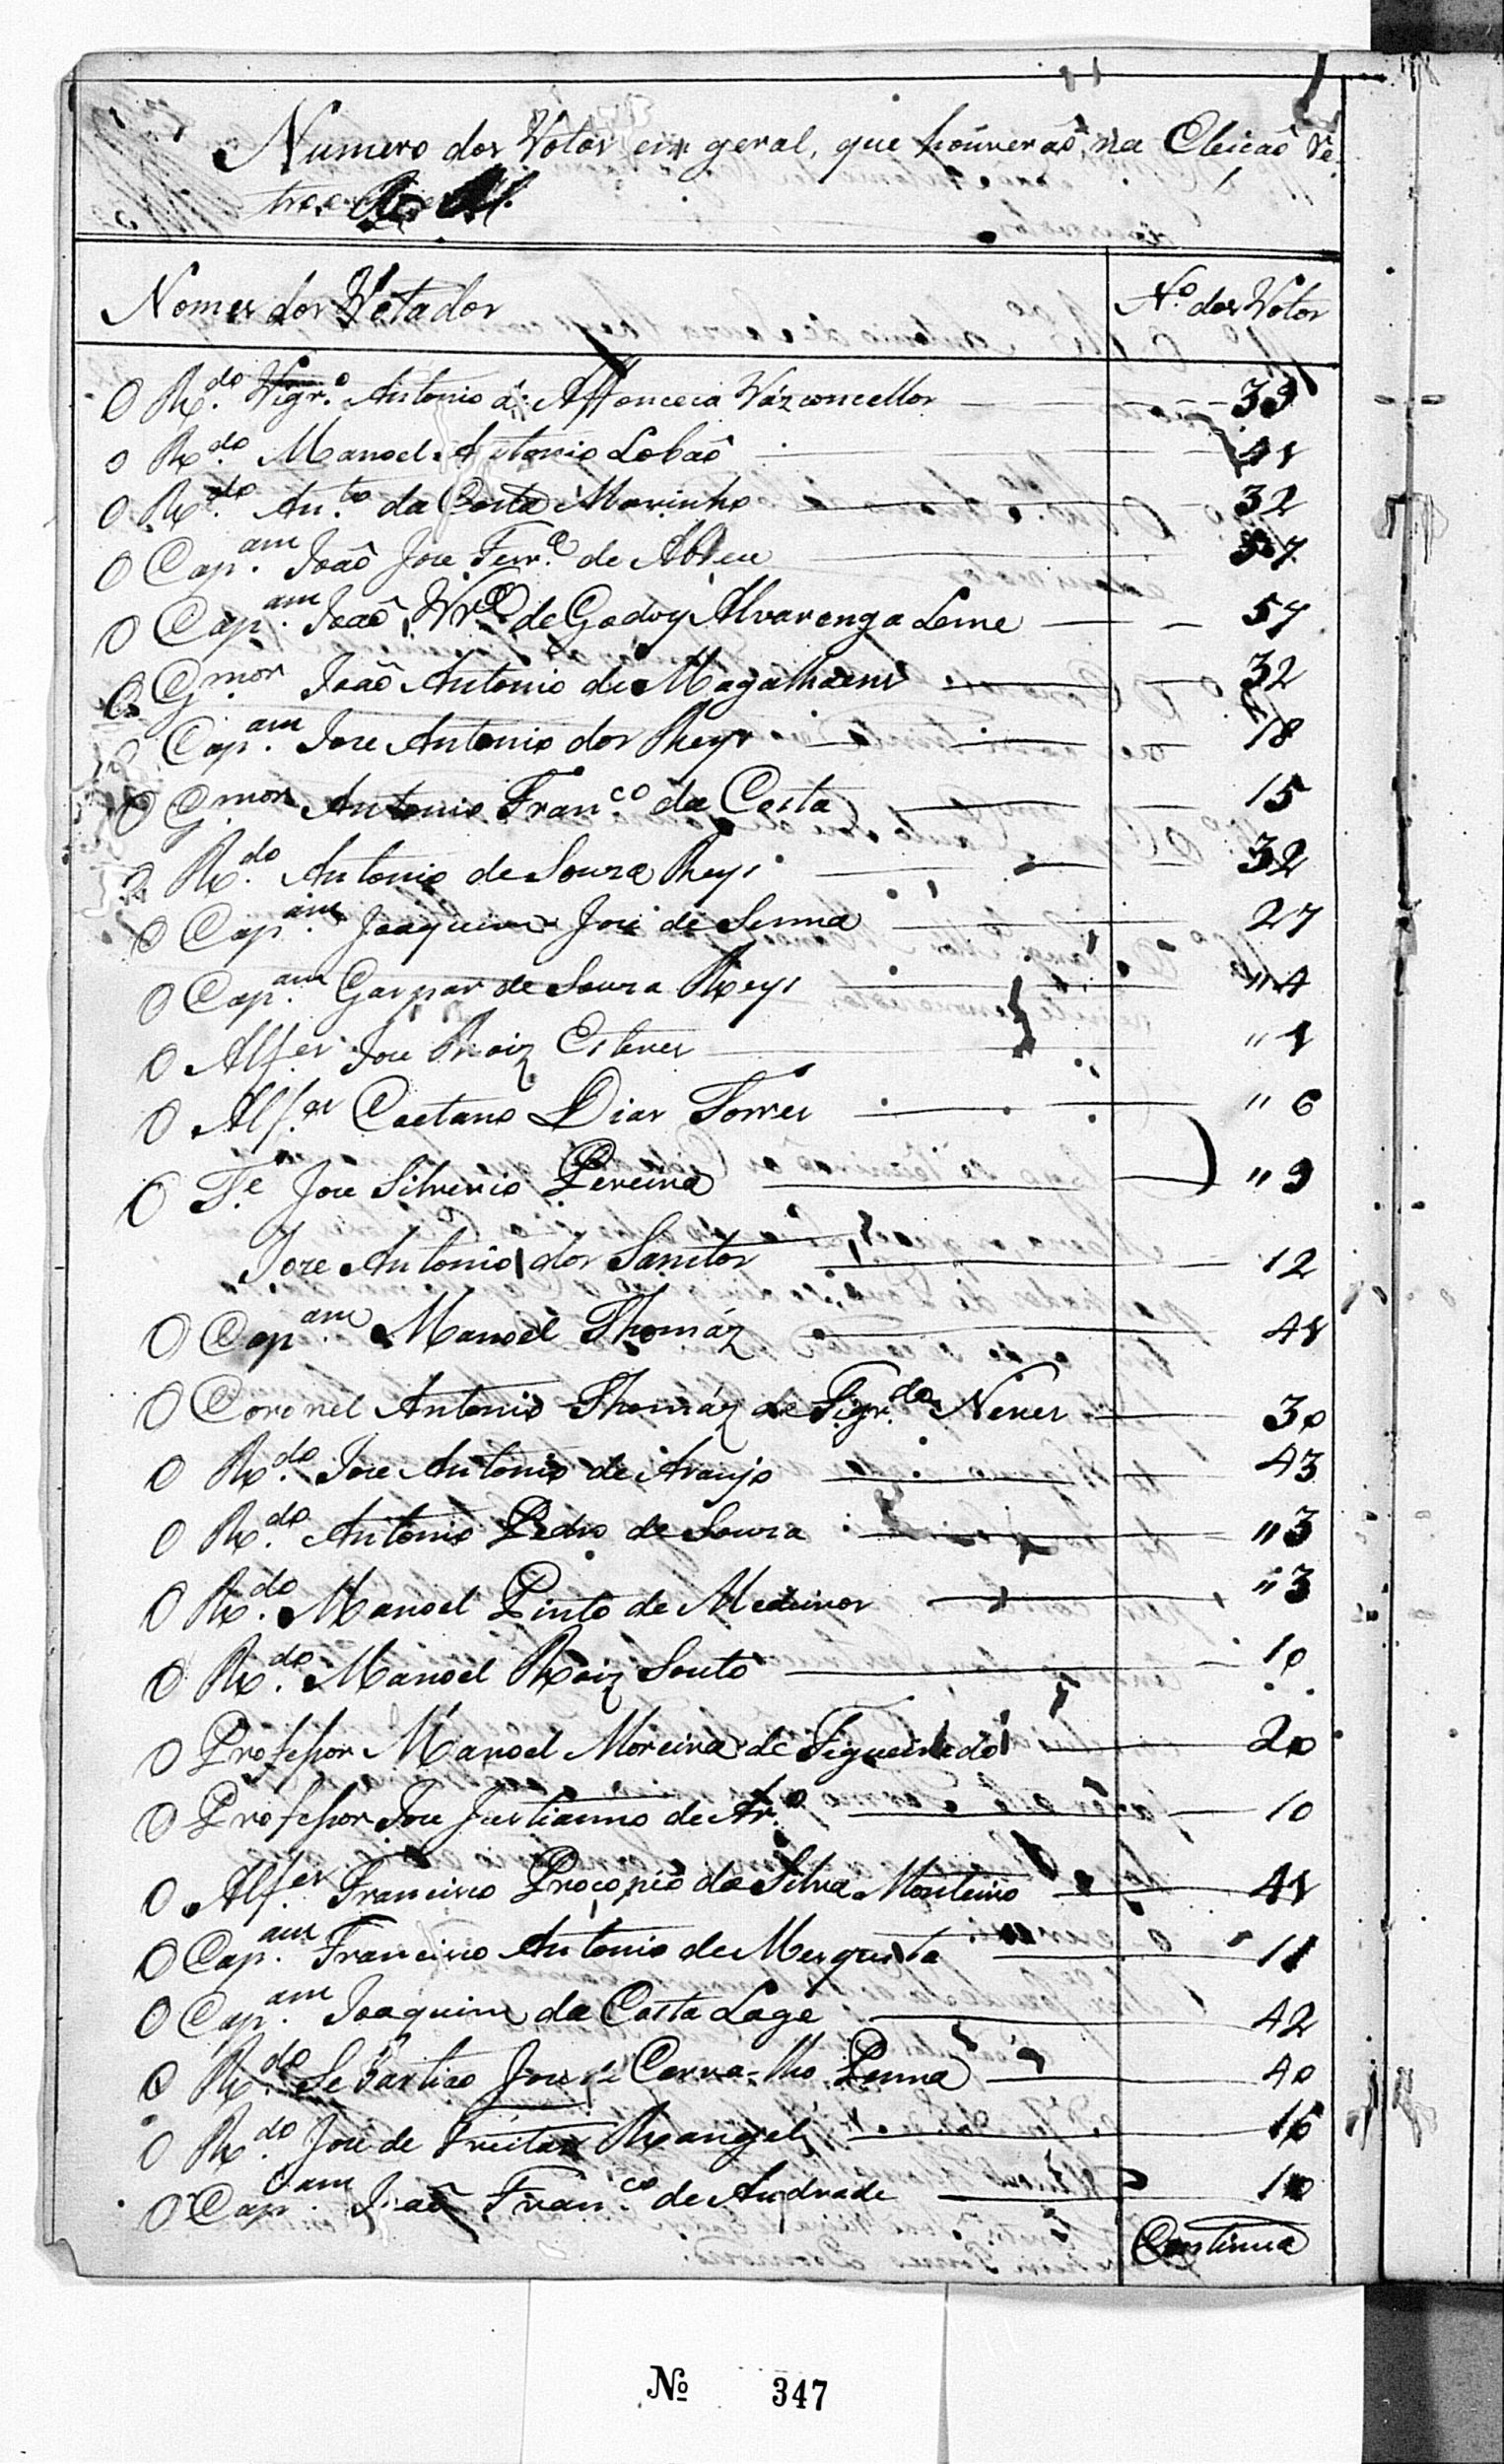 Numero dos Votos em geral, que houverão, na Eleicaõ de
Nomes dos Votados
N.º dos Votos
O R.do Vigr.º Antonio da Affonceca Vazconcellos 33
O R.do Manoel Antonio Lobaõ 41
O R.do An.to da Costa Marinho 32
O Cap.am Joaõ Jose Ferr.a de Abreu 57
O Cap.am Joaõ de Godoy Alvarenga Leme 57
O G.mor Joaõ Antonio de Magalhaens 32
O Cap.am Jose Antonio dos Reys 18
O G.mor Antonio Fran.co da Costa 15
O R.do Antonio de Souza Reys 32
O Cap.am Joaquim José de Senna 27
O Cap.am Gaspar de Souza Reys "4
O Alf.es Jose Roiz Esteves "1
O Alf.es Caetano Dias Torres "6
O T.e Jose Silverio Pereira "9
Joze Antonio dos Santos 12
O Cap.am Manoel Thomáz 41
O Coronel Antonio Thomáz de Figr.do Neves 30
O R.do Jose Antonio de Araujo 43
O R.do Antonio Pedro de Souza "3
O R.do Manoel Pinto de Medeiros "3
O R.do Manoel Roiz Souto 10
O Professor Manoel Moreira de Figueiredo 20
O Professor Jose Justianno de Ar.º 10
O Alf.es Francisco Procopio da Silva Monteiro 41
O Cap.am Francisco Antonio de Mesquita 11
O Cap.am Joaquim da Costa Lage 42
O R.do Sebastiao Jose de Carvalho Penna 40
O R.do Jose de Freitas Rangel 16
O Cap.am Joaõ Fran.co de Andrade 10
Continua
Nº 347